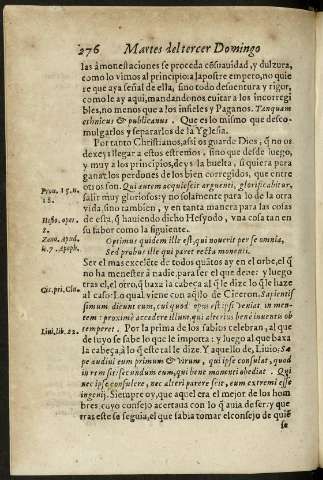 276 Martes del tercer Domingo
las amonestaciones se proceda cō suauidad, y dulzura,
como lo vimos al principio: a la postre empero, no quie
re que aya señal de ella, sino todo desuentura y rigor,
como le ay aqui, mandandonos euitar a los incorregi
bles, no menos que a los infieles y Paganos. Tanquam
ethnicus & publicanus. Que es lo mismo que desco-
mulgarlos y separarlos de la Yglesia.
Por tanto Christianos, asi os guarde Dios, q̃ no os
dexeys llegar a estos estremos, sino que desde luego,
y muy a los principios, deys la buelta, siquiera para
ganar los perdones de los bien corregidos, que entre
otros son. Qui autem acquiescit arguenti, glorificabitur,
Prou. 15. n.
18.
salir muy gloriosos: y no solamente para lo de la otra
vida, sino tambien, y en tanta manera para las cosas
de esta, q̃ hauiendo dicho Hesyodo, vna cosa tan en
Hesio. oper.
2.
su sabor como la siguiente.
Zeno. Apud.
Optimus quidem ille est, qui nouerit per se omnia,
Sed probus ille qui paret recta monenti.
Ser el mas excelēte de todos quātos ay en el orbe, el q̃
no ha menester à nadie, para ser el que deue: y luego
tras el, el otro, q̃ baxa la cabeça al q̃ le dize lo q̃ ha ze
Cic. pri, Clu.
al caso: Lo qual viene con aq̃llo de Ciceron. Sapientissimum dicunt eum, cui quod opus est ipsi veniat in men-
tem: proximè accedere illum, qui alterius benè inuentis ob
Liui, lib. 22.
temperet. Por la prima de los sabios celebran, al que
de suyo se sabe lo que le importa: y luego al que baxa
la cabeça, à lo q̃ este tal le dize. Y aquello de, Liuio. Sæ
pe audiui eum primum & virum, qui ipse consulat, quod
in rem sit: secundum eum, qui bene monenti obediat. Qui
nec ipse consulere, nec alteri parere scit, eum extremi esse
ingenij. Siempre oy, que aquel era el mejor de los hom
bres cuyo consejo acertaua con lo q̃ auia de ser: y que
tras este se seguia, el que sabia tomar el consejo de quiē
se